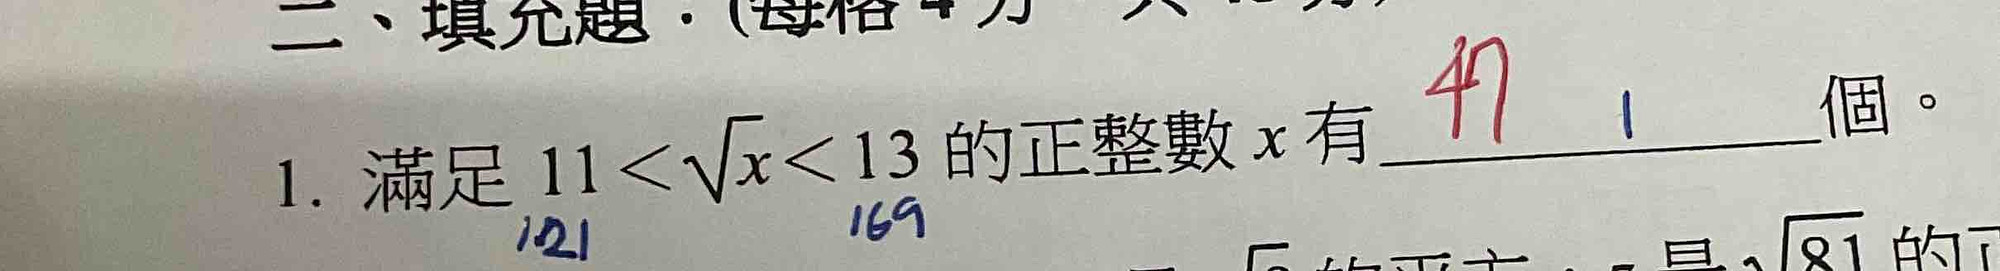 二、填充題：(每格4分
1. 滿足 11 < √x < 13 的正整數 x 有 47 1 個。
121 169
√81 的